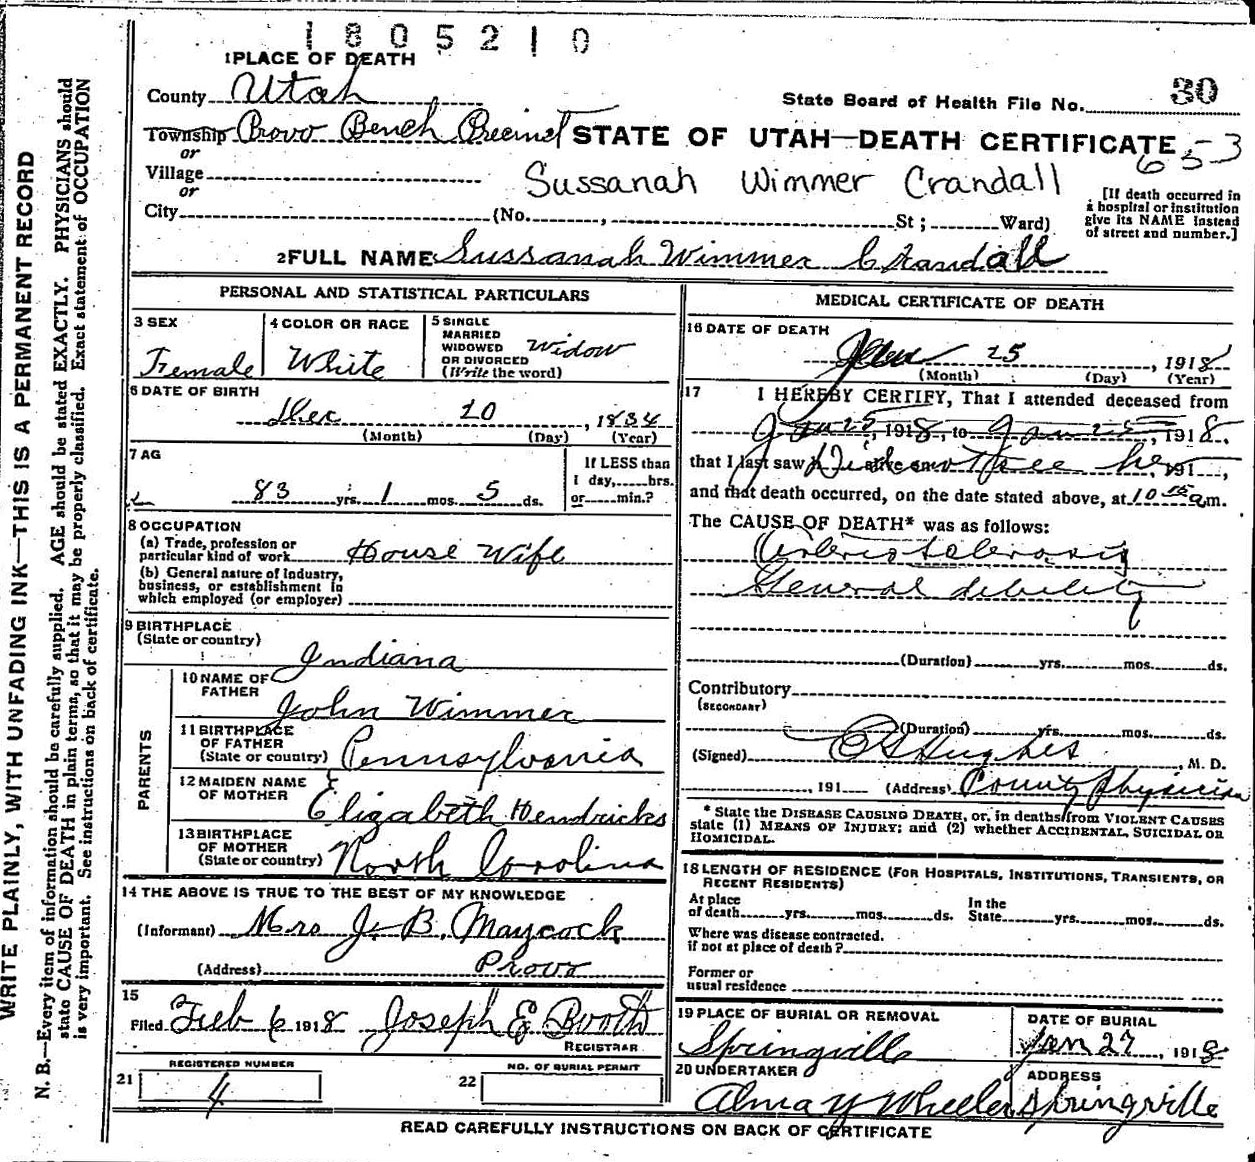 1805210
1 PLACE OF DEATH
County Utah
State Board of Health File No. 30
Township Provo Bench Precinct
STATE OF UTAH—DEATH CERTIFICATE
653
or
Village
Sussanah Wimmer Crandall
or
City (No. , St ; Ward)
[If death occurred in
a hospital or institution
give its NAME instead
of street and number.]
2 FULL NAME Sussanah Wimmer Crandall
PERSONAL AND STATISTICAL PARTICULARS
3 SEX
Female
4 COLOR OR RACE
White
5 SINGLE
MARRIED
WIDOWED
OR DIVORCED
(Write the word)
Widow
6 DATE OF BIRTH
Dec 20, 1834
(Month) (Day) (Year)
7 AG
83 yrs. 1 mos. 5 ds.
If LESS than
1 day, hrs.
or min.?
8 OCCUPATION
(a) Trade, profession or
particular kind of work House Wife
(b) General nature of industry,
business, or establishment in
which employed (or employer)
9 BIRTHPLACE
(State or country)
Indiana
PARENTS
10 NAME OF
FATHER
John Wimmer
11 BIRTHPLACE
OF FATHER
(State or country) Pennsylvania
12 MAIDEN NAME
OF MOTHER
Elizabeth Hendricks
13 BIRTHPLACE
OF MOTHER
(State or country) North Carolina
14 THE ABOVE IS TRUE TO THE BEST OF MY KNOWLEDGE
(Informant) Mrs J. B. Maycock
(Address) Provo
15
Filed Feb 6 1918 Joseph E Booth
REGISTRAR
REGISTERED NUMBER
21 4
NO. OF BURIAL PERMIT
22
MEDICAL CERTIFICATE OF DEATH
16 DATE OF DEATH
Jan 25, 1918
(Month) (Day) (Year)
17 I HEREBY CERTIFY, That I attended deceased from
Jan 25, 1918, to Jan 25, 1918,
that I last saw h Did not see her 191 ,
and that death occurred, on the date stated above, at 10 am.
The CAUSE OF DEATH* was as follows:
Arteriosclerosis
General debility
(Duration) yrs. mos. ds.
Contributory
(SECONDARY)
(Duration) yrs. mos. ds.
(Signed) Hughes, M. D.
, 191 (Address) County Physician
* State the DISEASE CAUSING DEATH, or, in deaths from VIOLENT CAUSES
state (1) MEANS OF INJURY; and (2) whether ACCIDENTAL, SUICIDAL OR
HOMICIDAL.
18 LENGTH OF RESIDENCE (FOR HOSPITALS, INSTITUTIONS, TRANSIENTS, OR
RECENT RESIDENTS)
At place
of death yrs. mos. ds.
In the
State yrs. mos. ds.
Where was disease contracted.
if not at place of death?
Former or
usual residence
19 PLACE OF BURIAL OR REMOVAL
Springville
DATE OF BURIAL
Jan 27, 1918
20 UNDERTAKER
Alma Wheeler
ADDRESS
Springville
READ CAREFULLY INSTRUCTIONS ON BACK OF CERTIFICATE
WRITE PLAINLY, WITH UNFADING INK—THIS IS A PERMANENT RECORD
N. B.—Every item of information should be carefully supplied. AGE should be stated EXACTLY. PHYSICIANS should
state CAUSE OF DEATH in plain terms, so that it may be properly classified. Exact statement of OCCUPATION
is very important. See instructions on back of certificate.